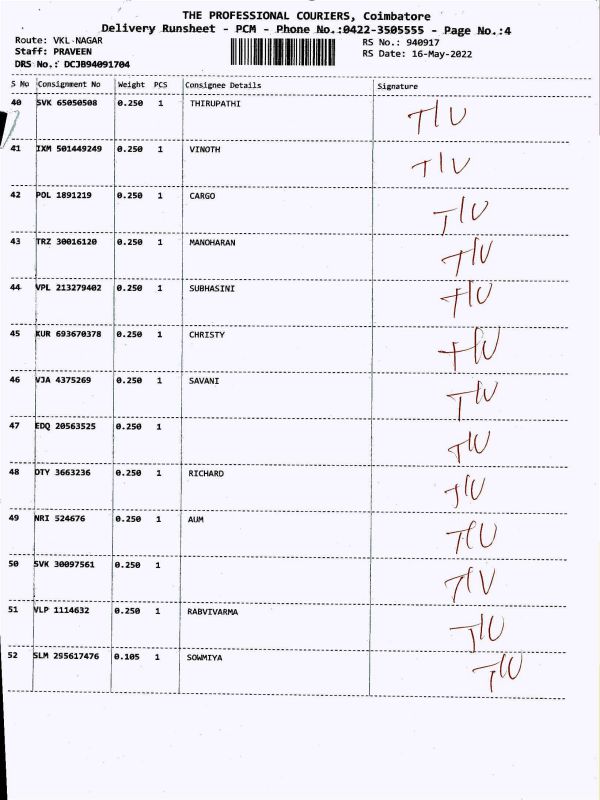 THE PROFESSIONAL COURIERS, Coimbatore
Delivery Runsheet - PCM - Phone No.:0422-3505555 - Page No.:4
Route: VKL-NAGAR RS No.: 940917
Staff: PRAVEEN RS Date: 16-May-2022
DRS No.: DCJB94091704
S No Consignment No Weight PCS Consignee Details Signature
40 SVK 65050508 0.250 1 THIRUPATHI T/U
41 IXM 501449249 0.250 1 VINOTH T/U
42 POL 1891219 0.250 1 CARGO T/U
43 TRZ 30016120 0.250 1 MANOHARAN T/U
44 VPL 213279402 0.250 1 SUBHASINI T/U
45 KUR 693670378 0.250 1 CHRISTY T/U
46 VJA 4375269 0.250 1 SAVANI T/U
47 EDQ 20563525 0.250 1 T/U
48 DTY 3663236 0.250 1 RICHARD T/U
49 NRI 524676 0.250 1 AUM T/U
50 SVK 30097561 0.250 1 T/U
51 VLP 1114632 0.250 1 RABVIVARMA T/U
52 SLM 295617476 0.105 1 SOWMIYA T/U